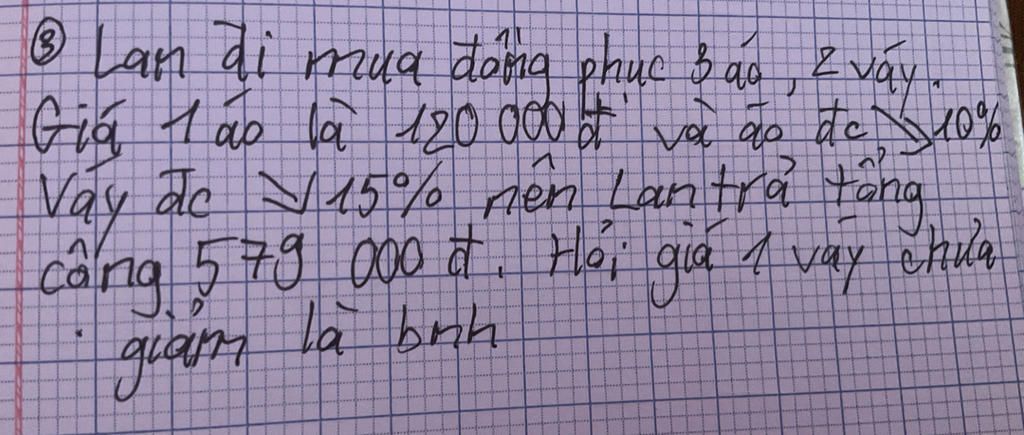 ③ Lan đi mua đồng phục 3 áo, 2 váy.
Giá 1 áo là 120 000 đ và áo đc ↘ 10%
Váy đc ↘ 15% nên Lan trả tổng
cộng 579 000 đ. Hỏi giá 1 váy chưa
giảm là bnh